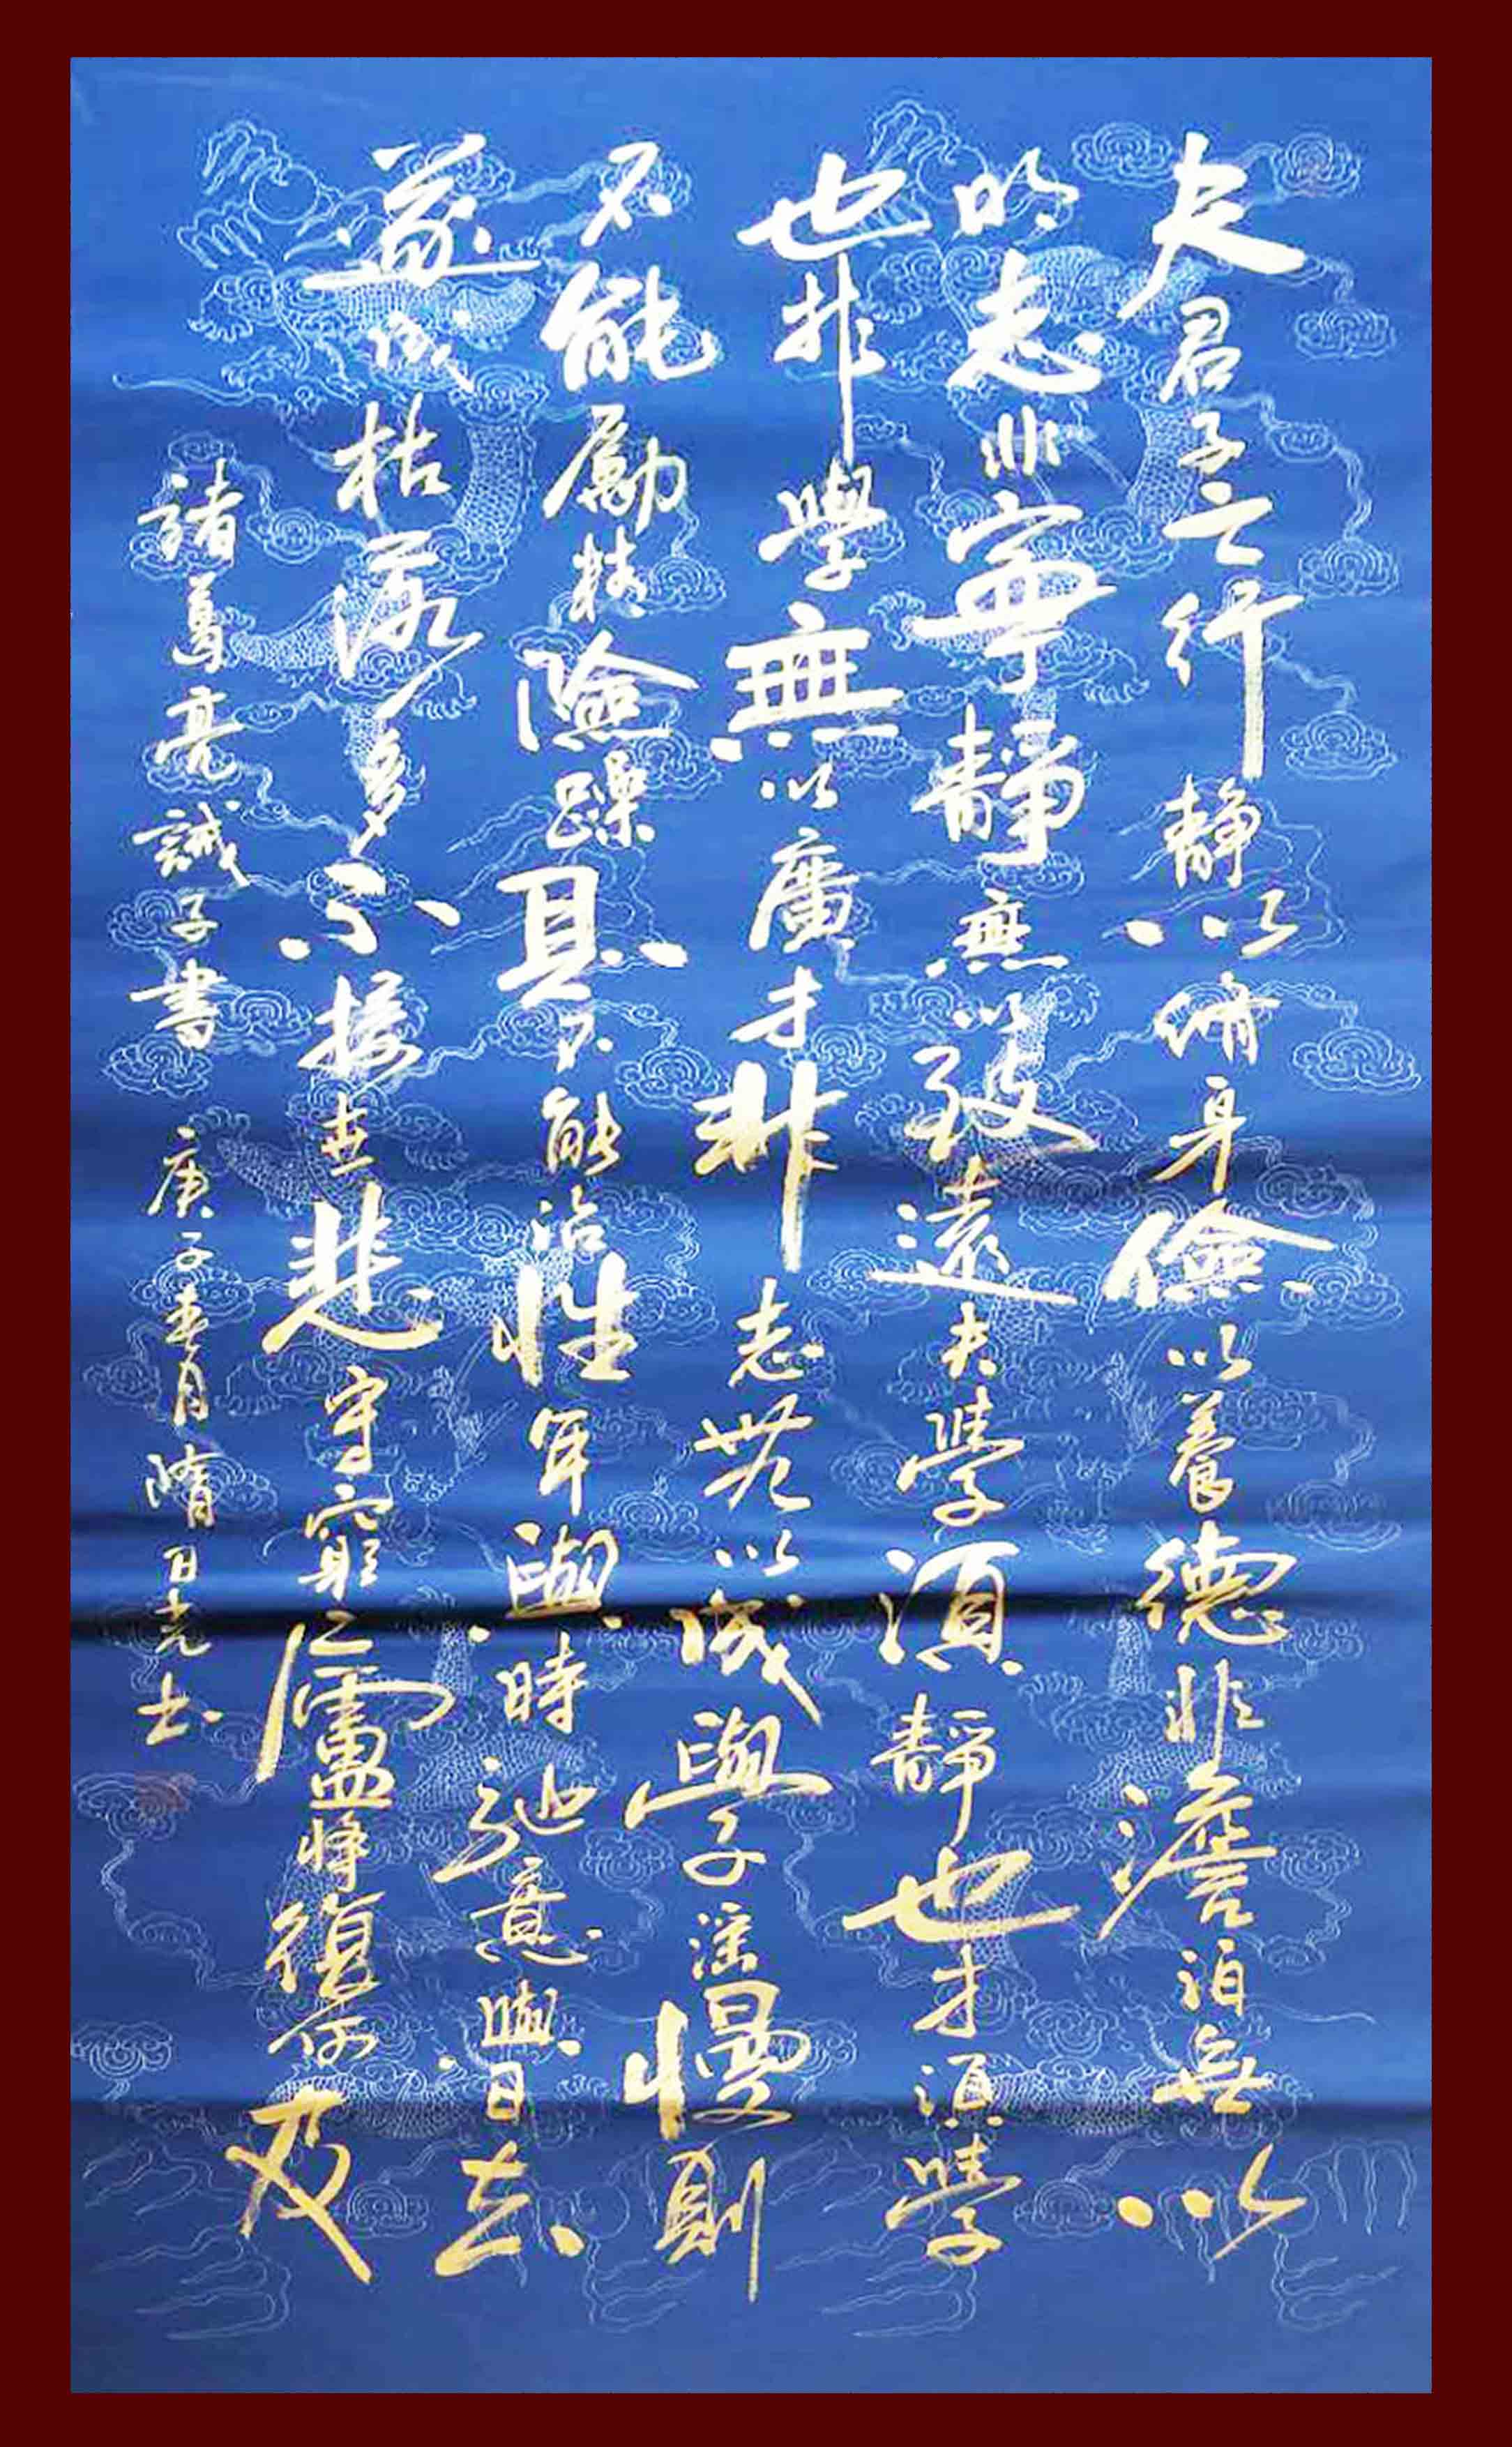 夫君子之行静以脩身儉以養德非澹泊無以
明志非寧靜無以致遠夫學須靜也才須學
也非學無以廣才非志無以成學淫慢則
不能勵精險躁則不能治性年與時馳意與日去
遂成枯落多不接世悲守窮廬將復何及
諸葛亮誡子書 庚子春月隋日光书